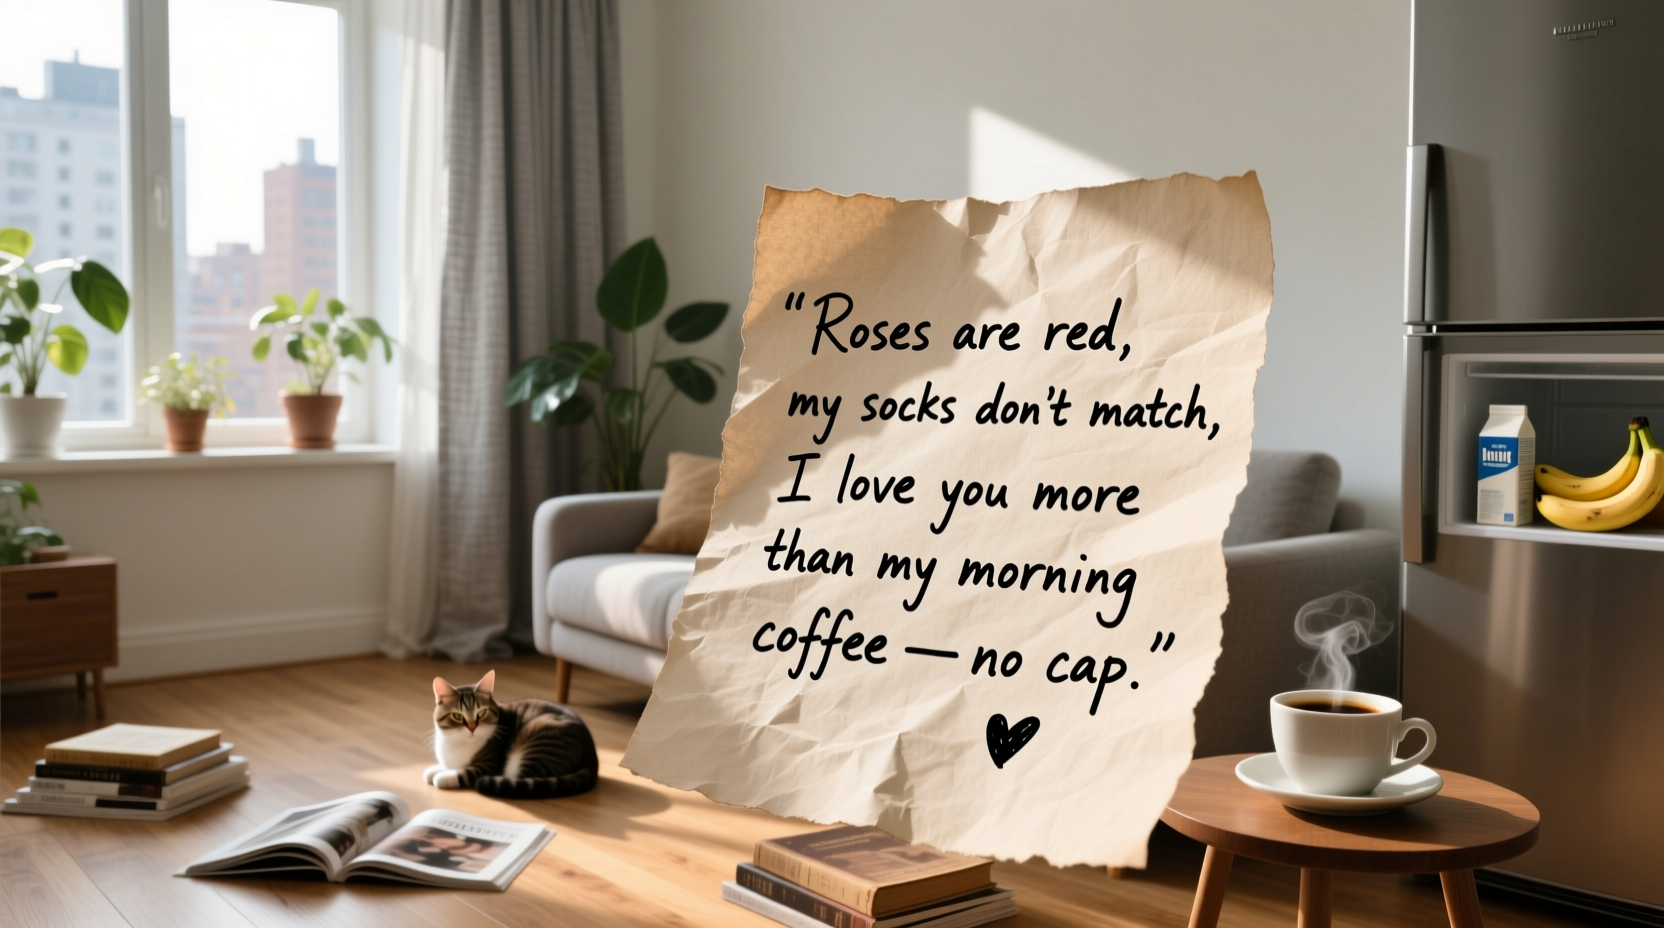 “Roses are red,
my socks don't match,
I love you more
than my morning
coffee — no cap.”